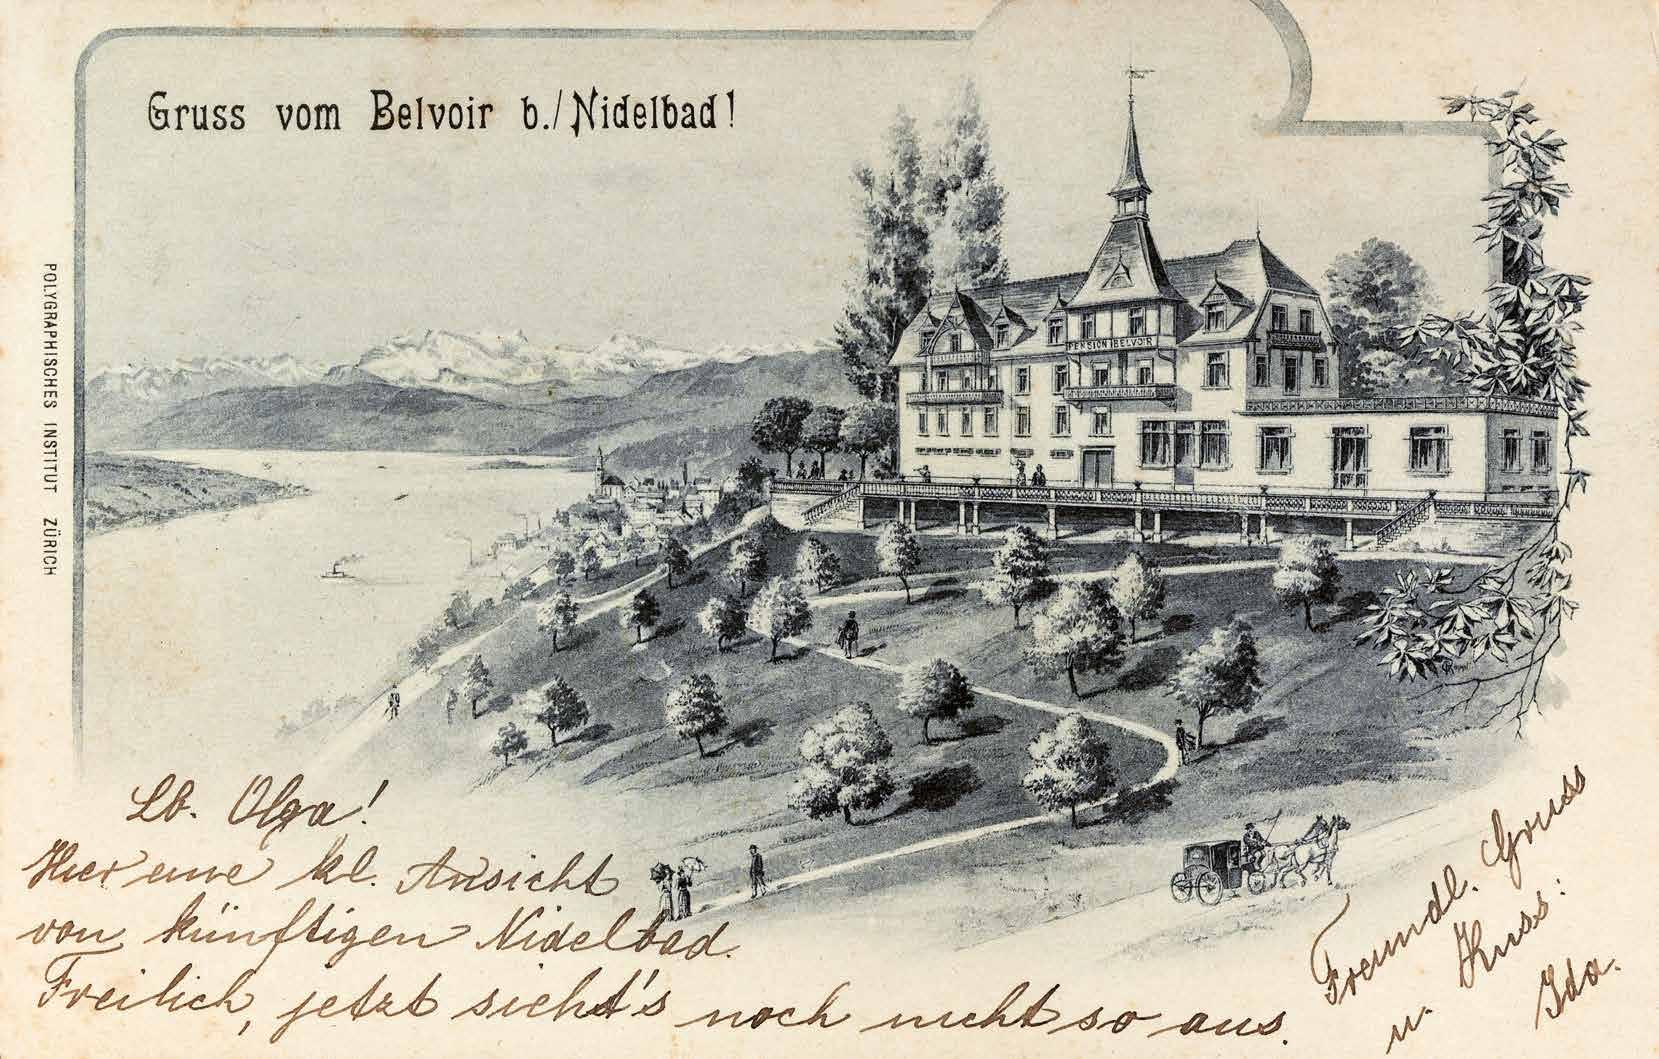 Gruss vom Belvoir b./Nidelbad!
PENSION BELVOIR
POLYGRAPHISCHES INSTITUT ZÜRICH
Lb. Olga!
Hier eine kl. Ansicht
von künftigen Nidelbad.
Freilich, jetzt sieht's noch nicht so aus.
Freundl. Gruss
u. Kuss:
Ida.